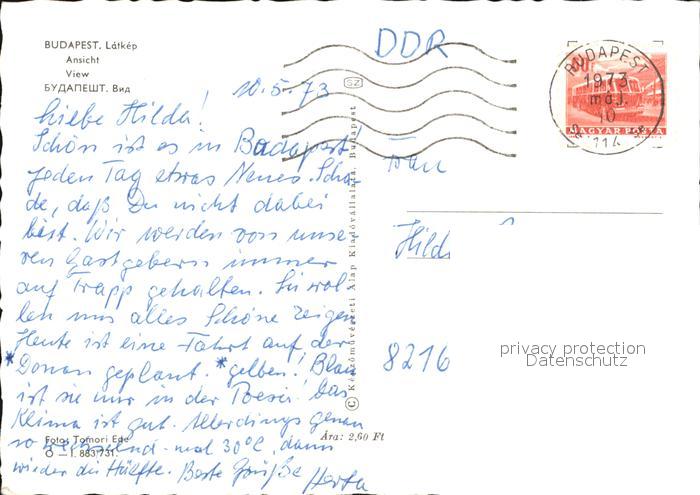 BUDAPEST. Látkép
Ansicht
View
БУДАПЕШТ. Вид
DDR
SZ
BUDAPEST
1973
máj.
10
114
MAGYAR POSTA
10.5.73
Liebe Hilda!
Schön ist es in Budapest!
Jeden Tag etwas Neues. Scha-
de, daß Du nicht dabei
bist. Wir werden von unse-
ren Gastgebern immer
auf Trapp gehalten. Sie wol-
len uns alles Schöne zeigen.
Heute ist eine Fahrt auf der
*Donau geplant. *gelben! Blau
ist sie nur in der Poesie. Das
Klima ist gut. Allerdings genau
so wechselnd - mal 30°C, dann
wieder die Hälfte. Beste Grüße
Herta
Foto: Tomori Ede
O — I. 883/731.
Ára: 2,60 Ft
© Képzőművészeti Alap Kiadóvállalata, Budapest
Frau
Hild
8216
privacy protection
Datenschutz